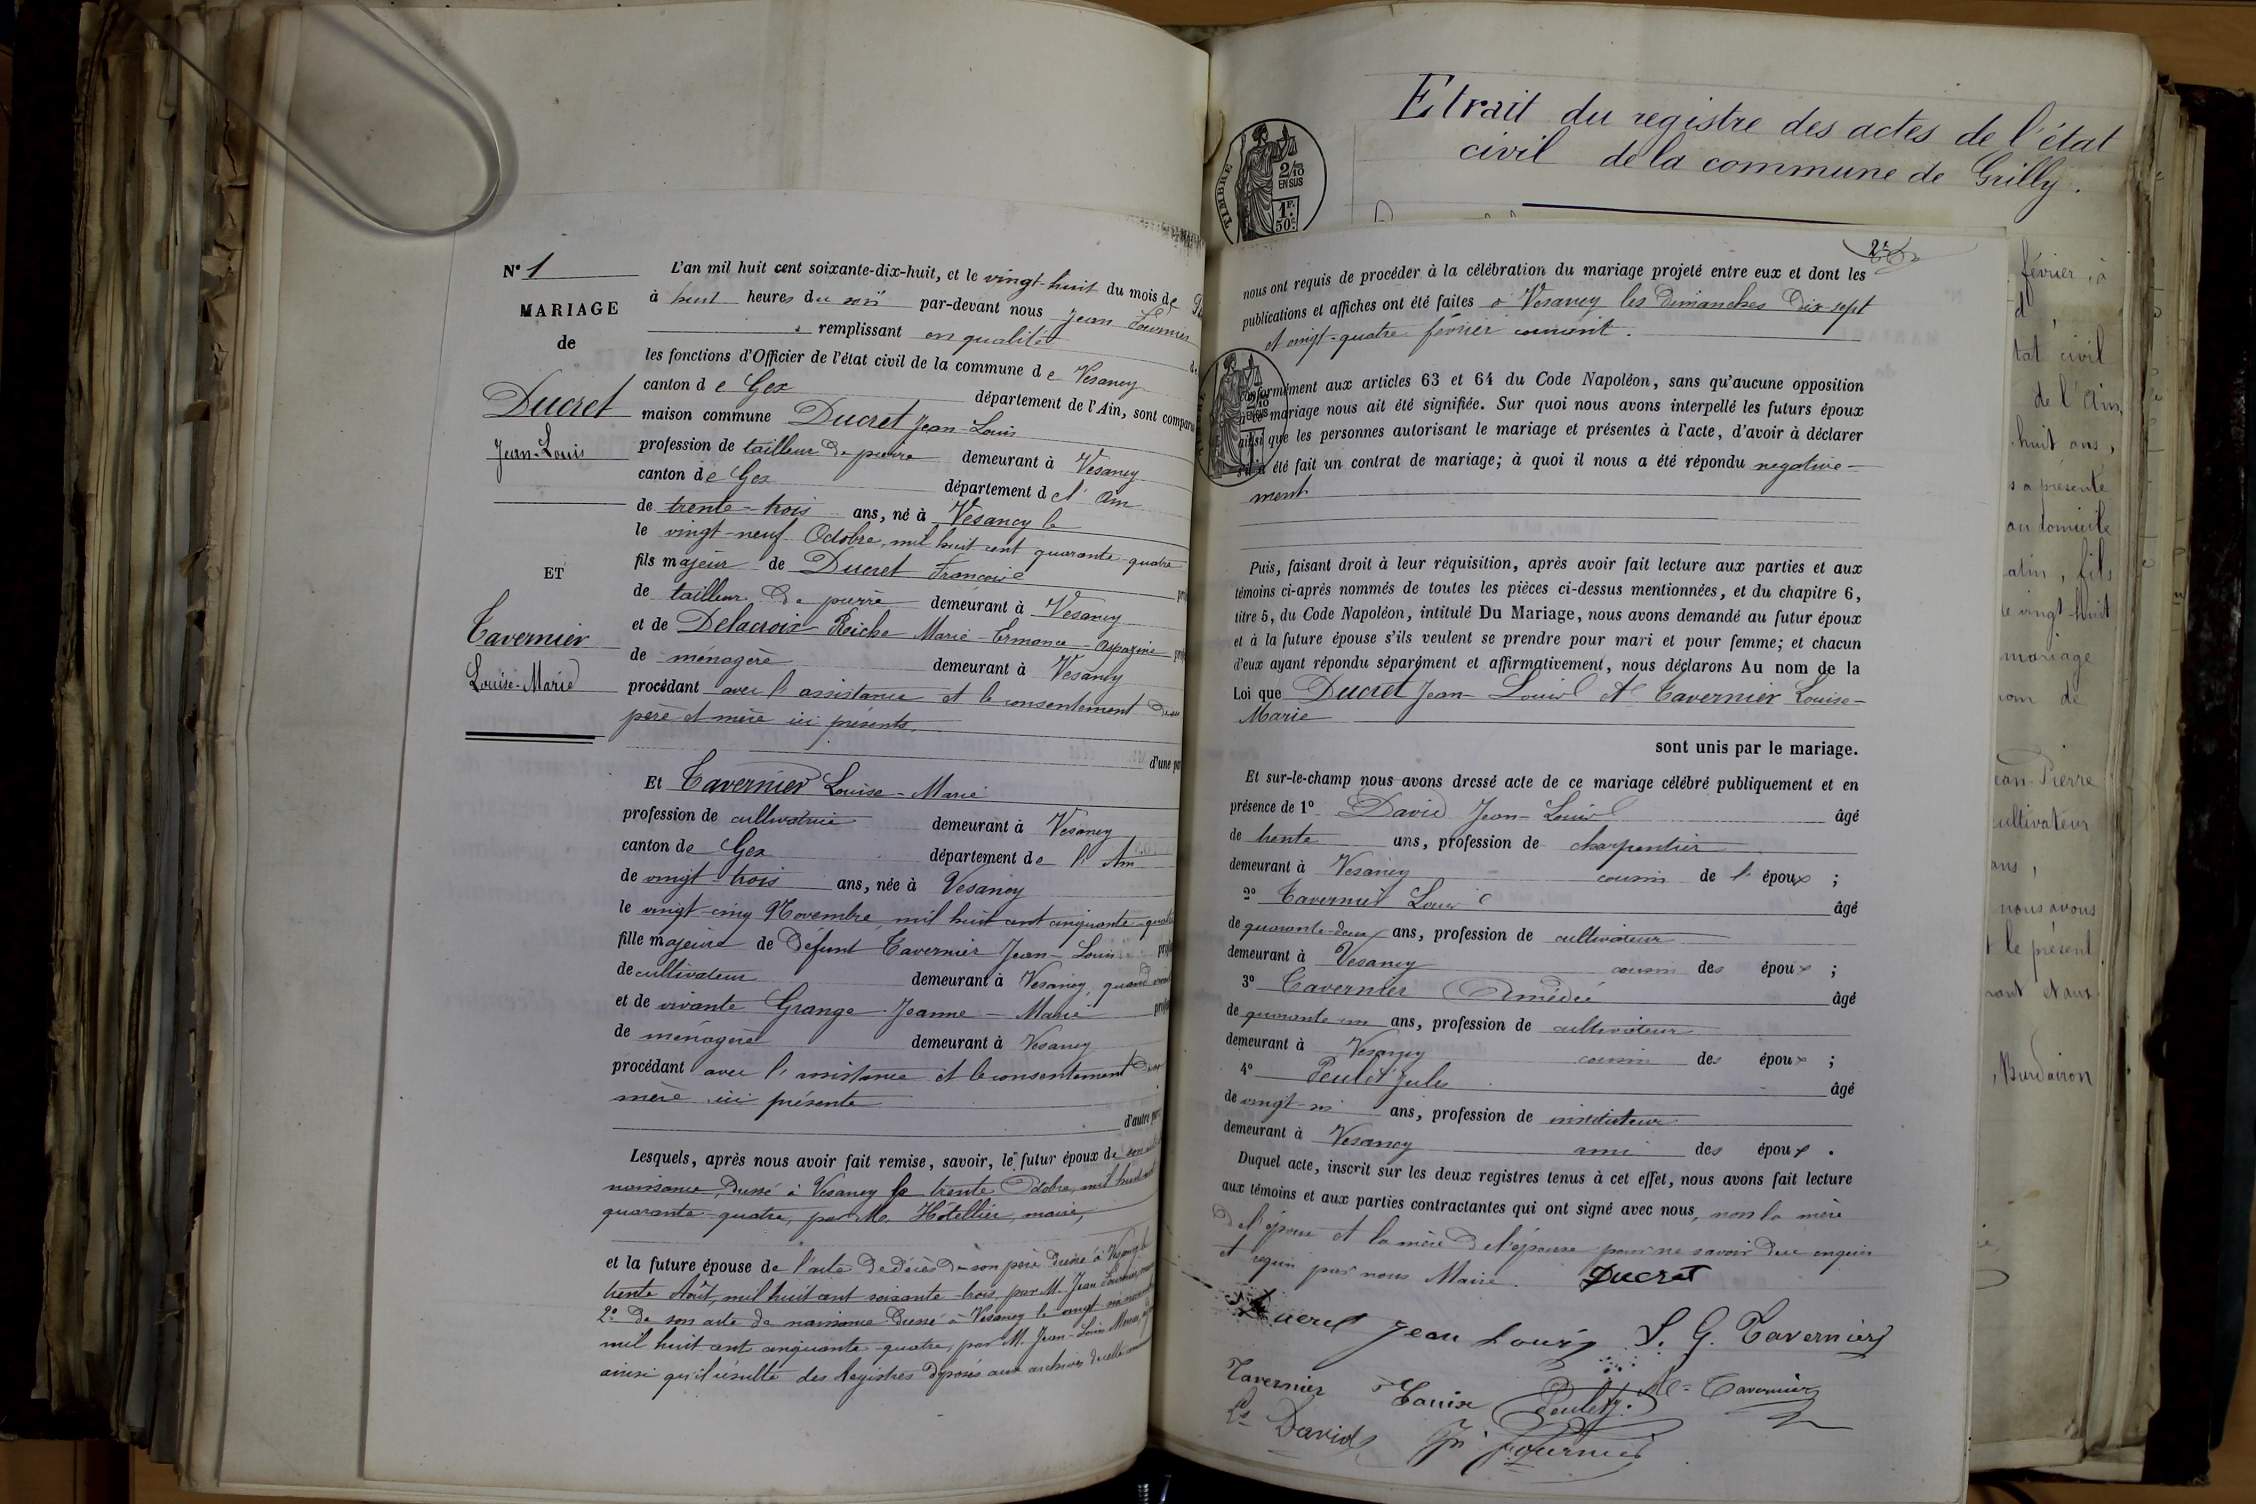 N° 1
MARIAGE
de
Ducret
Jean-Louis
ET
Tavernier
Louise-Marie
L'an mil huit cent soixante-dix-huit, et le vingt-huit du mois de
à huit heures du soir par-devant nous Jean Fournier
remplissant en qualité
les fonctions d'Officier de l'état civil de la commune de Vesancy
canton de Gex département de l'Ain, sont comparus
maison commune Ducret Jean-Louis
profession de tailleur de pierre demeurant à Vesancy
canton de Gex département de l'Ain
de trente-trois ans, né à Vesancy le
le vingt-neuf Octobre, mil huit cent quarante-quatre
fils majeur de Ducret François
de tailleur de pierre demeurant à Vesancy
et de Delacroix Reiche Marie-Ermance-Aspazine
de ménagère demeurant à Vesancy
procédant avec l'assistance et le consentement de ses
père et mère ici présents.
d'une par
Et Tavernier Louise-Marie
profession de cultivatrice demeurant à Vesancy
canton de Gex département de l'Ain
de vingt-trois ans, née à Vesancy
le vingt-cinq Novembre, mil huit cent cinquante-quatre
fille majeure de Défunt Tavernier Jean-Louis
de cultivateur demeurant à Vesancy, quand
et de vivante Grange Jeanne-Marie
de ménagère demeurant à Vesancy
procédant avec l'assistance et le consentement de sa
mère ici présente
d'autre part
Lesquels, après nous avoir fait remise, savoir, le futur époux de son acte
naissance, Dressé à Vesancy le trente Octobre, mil huit cent
quarante-quatre, par M. Hôtellier, maire,
et la future épouse de l'acte de décès de son père dressé à Vesancy le
trente Août, mil huit cent soixante-trois, par M. Jean Fournier, maire
2° De son acte de naissance Dressé à Vesancy le vingt-six novembre
mil huit cent cinquante-quatre, par M. Jean-Louis
ainsi qu'il résulte des Registres déposés aux archives de cette commune
Etrait du registre des actes de l'état
civil de la commune de Grilly.
TIMBRE
2/10
EN SUS
1F.
50c.
2
nous ont requis de procéder à la célébration du mariage projeté entre eux et dont les
publications et affiches ont été faites à Vesancy les Dimanches Dix-sept
et vingt-quatre février courant.
conformément aux articles 63 et 64 du Code Napoléon, sans qu'aucune opposition
à ce mariage nous ait été signifiée. Sur quoi nous avons interpellé les futurs époux
ainsi que les personnes autorisant le mariage et présentes à l'acte, d'avoir à déclarer
s'il a été fait un contrat de mariage; à quoi il nous a été répondu negative-
ment
Puis, faisant droit à leur réquisition, après avoir fait lecture aux parties et aux
témoins ci-après nommés de toutes les pièces ci-dessus mentionnées, et du chapitre 6,
titre 5, du Code Napoléon, intitulé Du Mariage, nous avons demandé au futur époux
et à la future épouse s'ils veulent se prendre pour mari et pour femme; et chacun
d'eux ayant répondu séparément et affirmativement, nous déclarons Au nom de la
Loi que Ducret Jean-Louis et Tavernier Louise-
Marie
sont unis par le mariage.
Et sur-le-champ nous avons dressé acte de ce mariage célébré publiquement et en
présence de 1° David Jean-Louis âgé
de trente ans, profession de charpentier
demeurant à Vesancy cousin de l'époux ;
2° Tavernier Louis âgé
de quarante-deux ans, profession de cultivateur
demeurant à Vesancy cousin des époux ;
3° Tavernier Amédée âgé
de quarante-un ans, profession de cultivateur
demeurant à Vesancy cousin des époux ;
4° Peulet Jules âgé
de vingt-six ans, profession de instituteur
demeurant à Vesancy ami des époux .
Duquel acte, inscrit sur les deux registres tenus à cet effet, nous avons fait lecture
aux témoins et aux parties contractantes qui ont signé avec nous, non la mère
de l'époux et la mère de l'épouse pour ne savoir de ce enquis
et requis par nous Maire. Ducret
Ducret Jean Louis L. G. Tavernier
Tavernier Louise Peulet J. A= Tavernier
Ls David Jn Fournier
février, à
tat civil
de l'Ain,
huit ans,
s a présenté
au domicile
atin, fils
le vingt-huit
mariage
nom de
ean-Pierre
cultivateur
ans,
nous avons
t le présent
, Burdairon